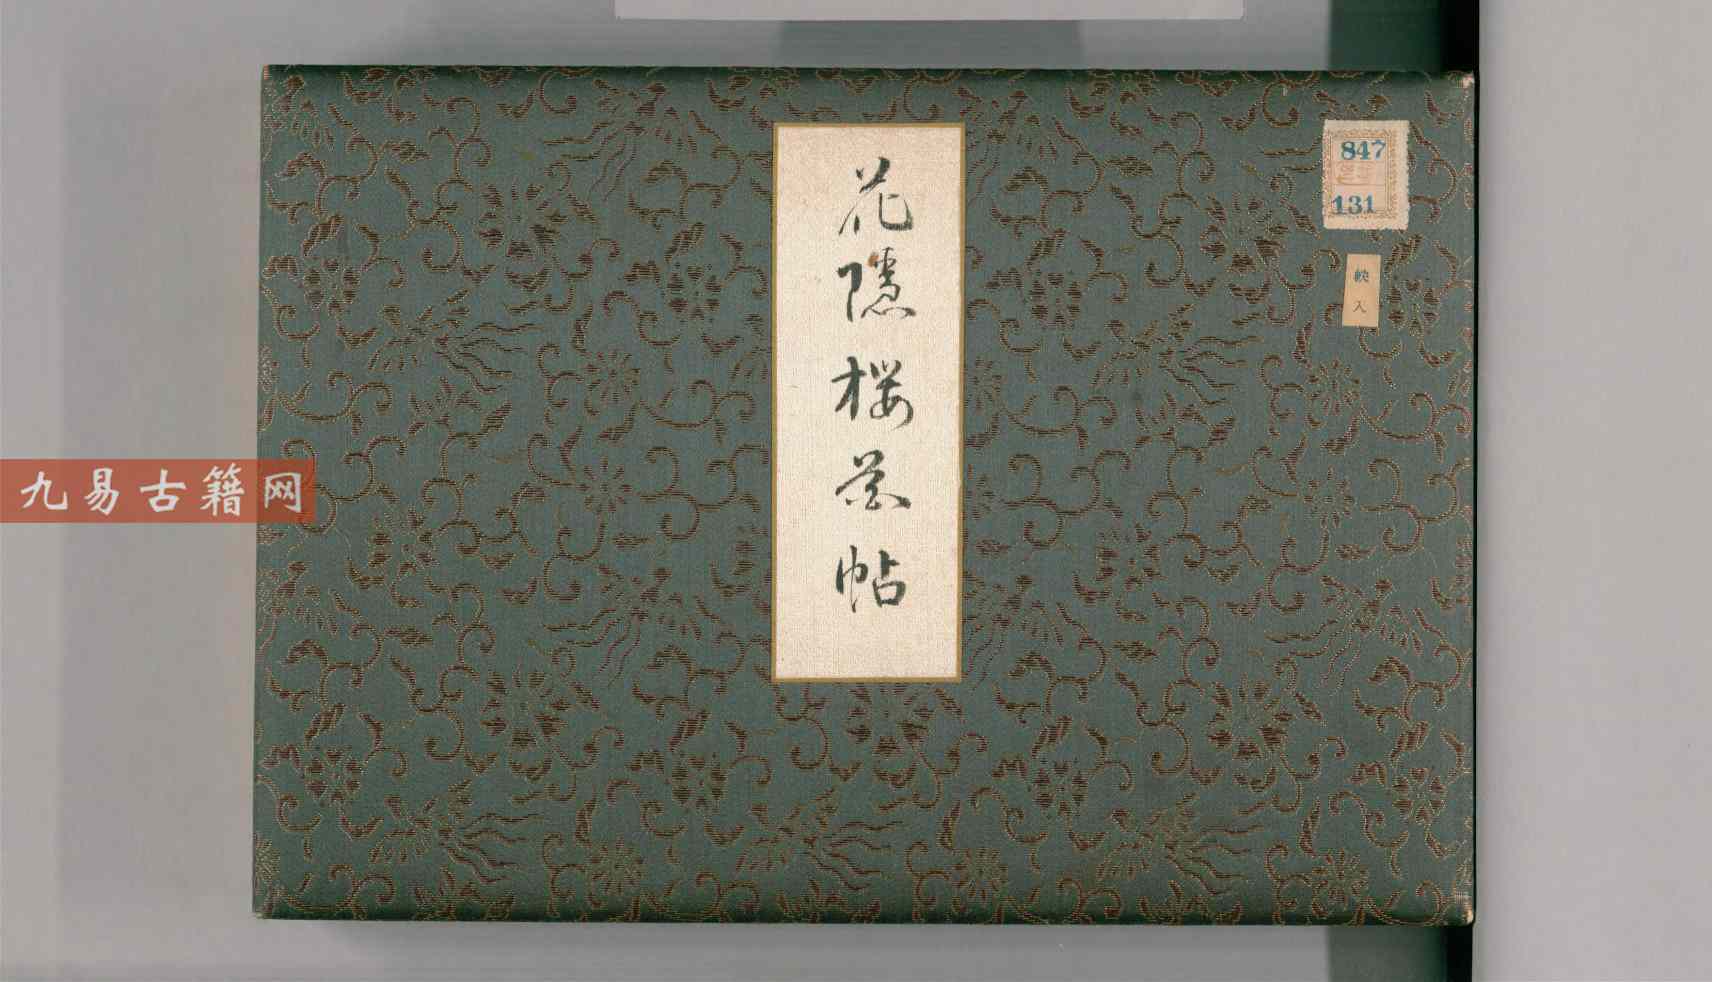 花隠桜花帖
847
131
帙入
九易古籍网